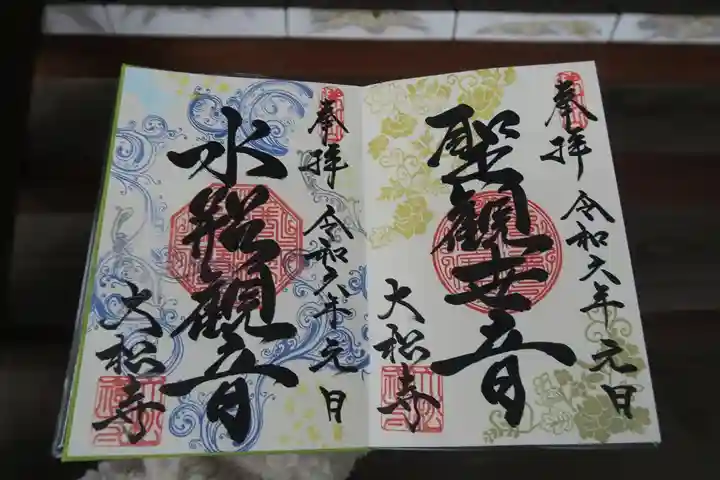 奉拝
令和六年元日
聖観世音
大松寺
奉拝
令和六年元日
水稲観音
大松寺